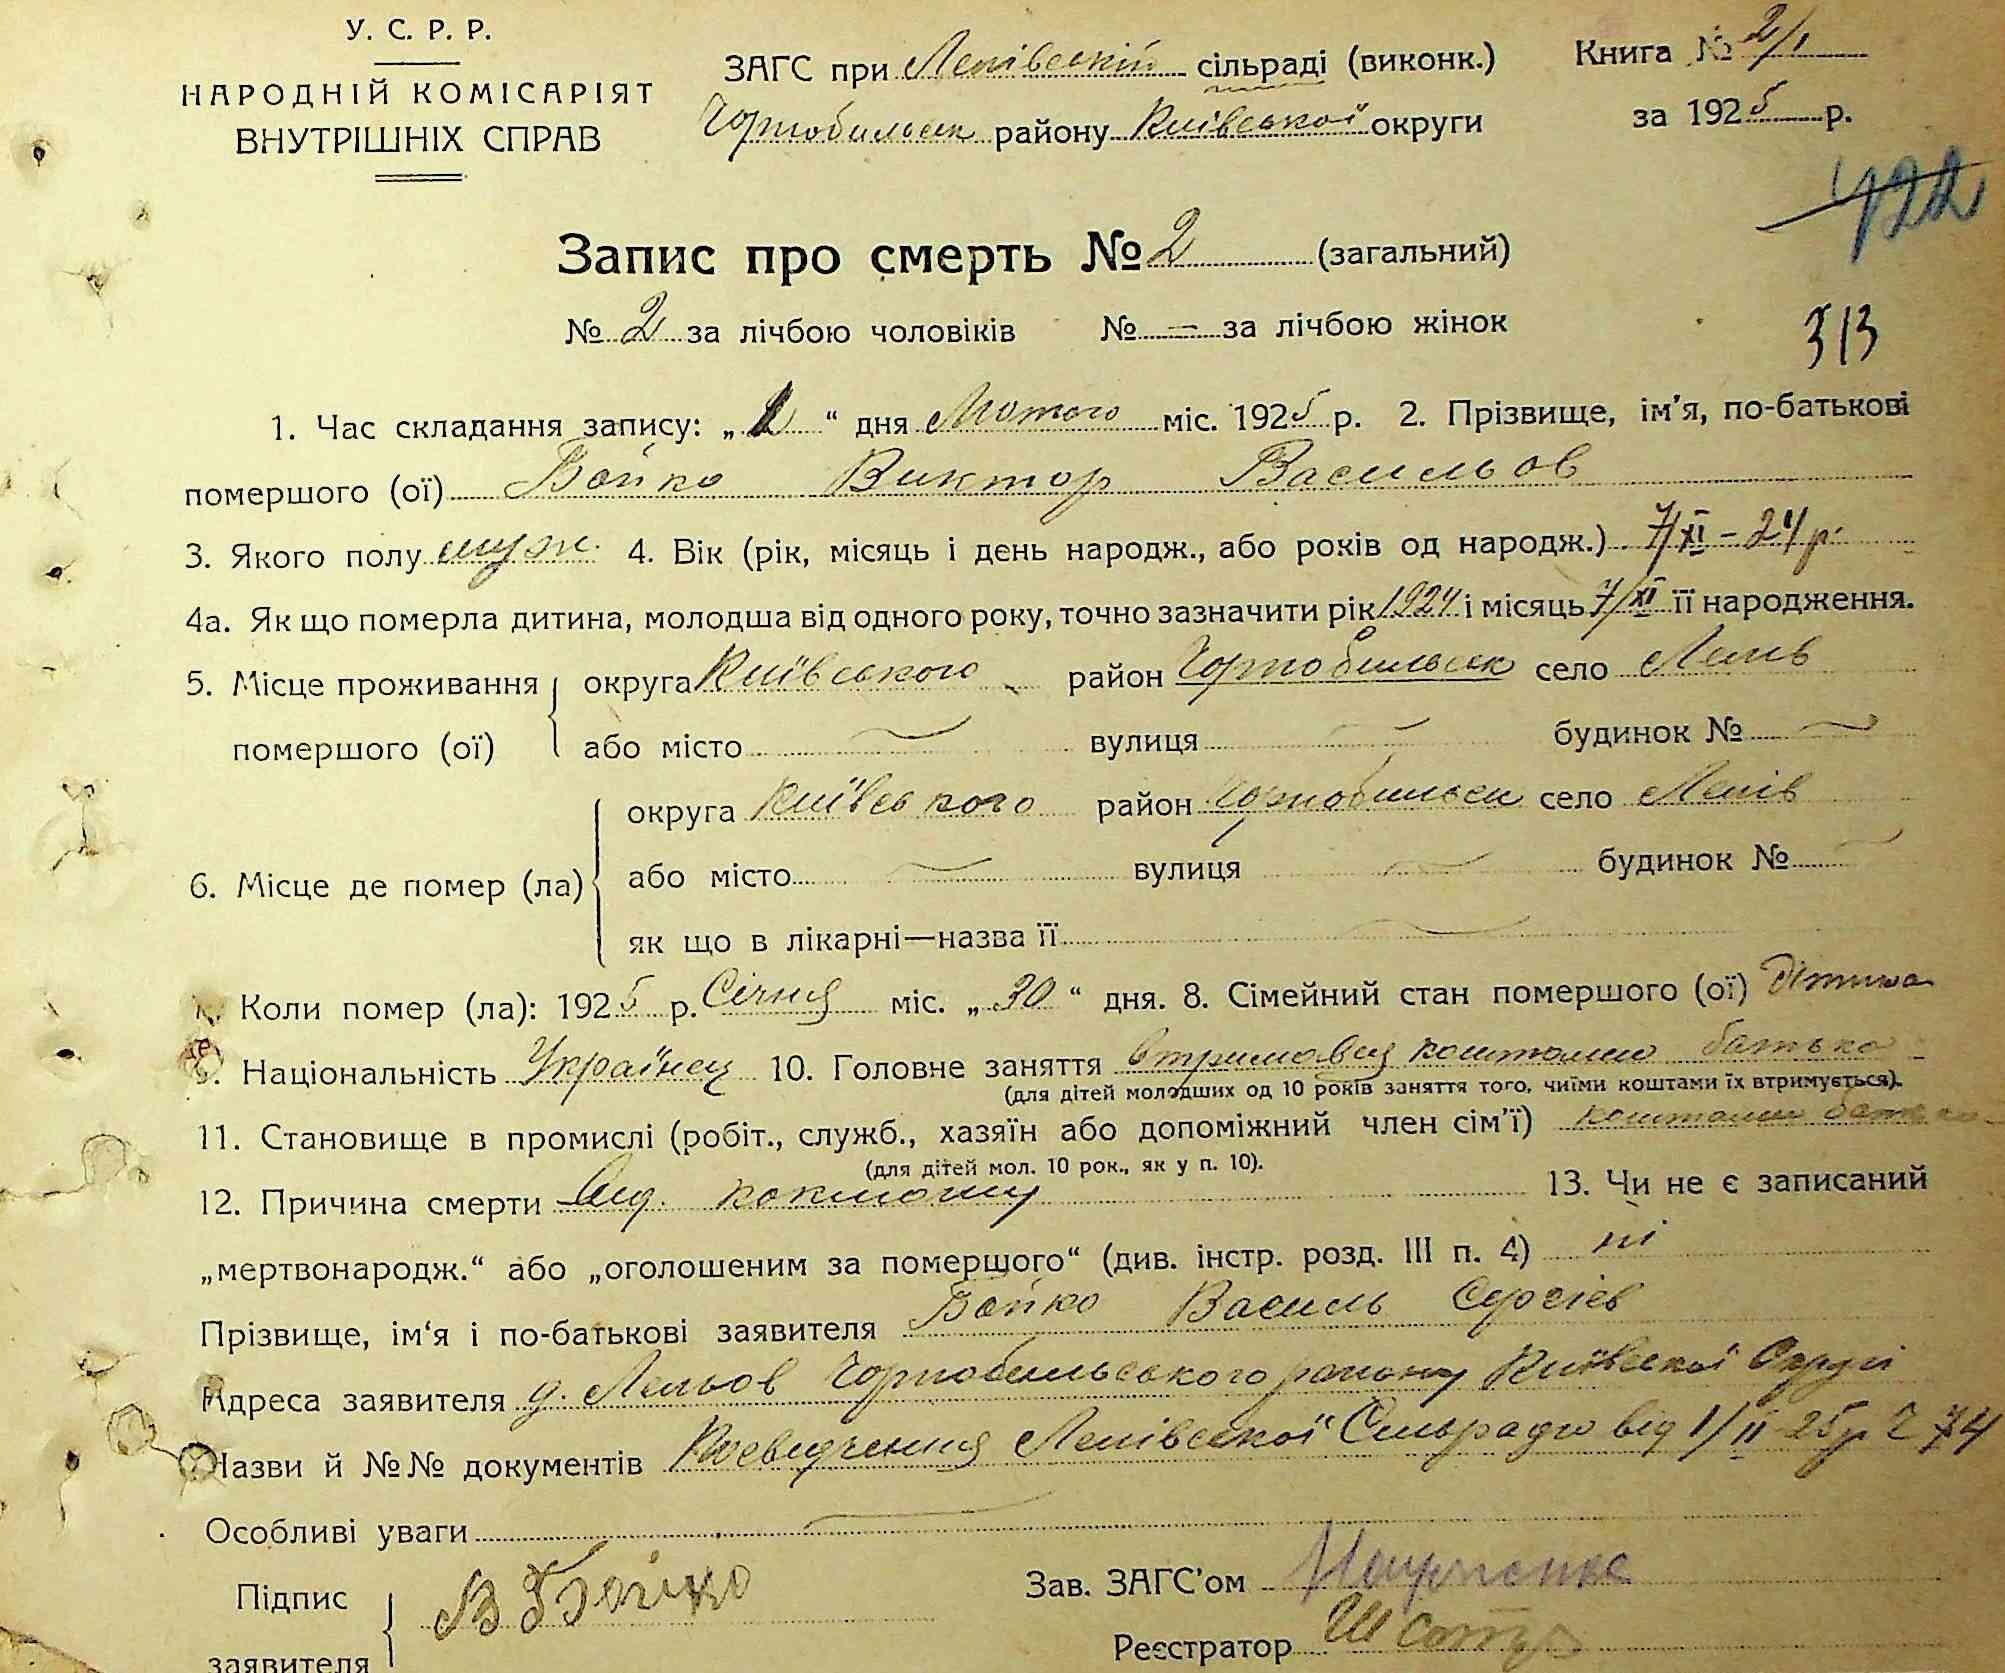 У. С. Р. Р.
НАРОДНІЙ КОМІСАРІЯТ
ВНУТРІШНІХ СПРАВ
ЗАГС при Лепівській сільраді (виконк.)
Чорнобильск району Київської округи
Книга № 2/1
за 1925 р.
422
Запис про смерть № 2 (загальний)
№ 2 за лічбою чоловіків № — за лічбою жінок
313
1. Час складання запису: „2“ дня Лютого міс. 1925 р. 2. Прізвище, ім'я, по-батькові
помершого (ої) Бойко Виктор Васильов
3. Якого полу муж. 4. Вік (рік, місяць і день народж., або років од народж.) 7/XI – 24 р.
4а. Як що померла дитина, молодша від одного року, точно зазначити рік 1924 і місяць 7/XI її народження.
5. Місце проживання помершого (ої)
округа Київського район Чорнобильск село Лепів
або місто — вулиця — будинок № —
6. Місце де помер (ла)
округа Київського район Чорнобильск село Лепів
або місто — вулиця — будинок № —
як що в лікарні—назва її —
Коли помер (ла): 1925 р. Січня міс. „30“ дня. 8. Сімейний стан помершого (ої) дітина
9. Національність Українец 10. Головне заняття втримавця коштами батька
(для дітей молодших од 10 років заняття того, чиїми коштами їх втримується).
11. Становище в промислі (робіт., служб., хазяїн або допоміжний член сім'ї) коштами батька
(для дітей мол. 10 рок., як у п. 10).
12. Причина смерти Від коклюшу 13. Чи не є записаний
„мертвонародж.“ або „оголошеним за помершого“ (див. інстр. розд. III п. 4) ні
Прізвище, ім'я і по-батькові заявителя Бойко Василь Сергіев
Адреса заявителя д. Лельов Чорнобильського району Київської Округи
Назви й №№ документів Посведчения Лепівської Сільради від 1/II 25 р 74
Особливі уваги —
Підпис заявителя В Бойко
Зав. ЗАГС'ом
Реєстратор